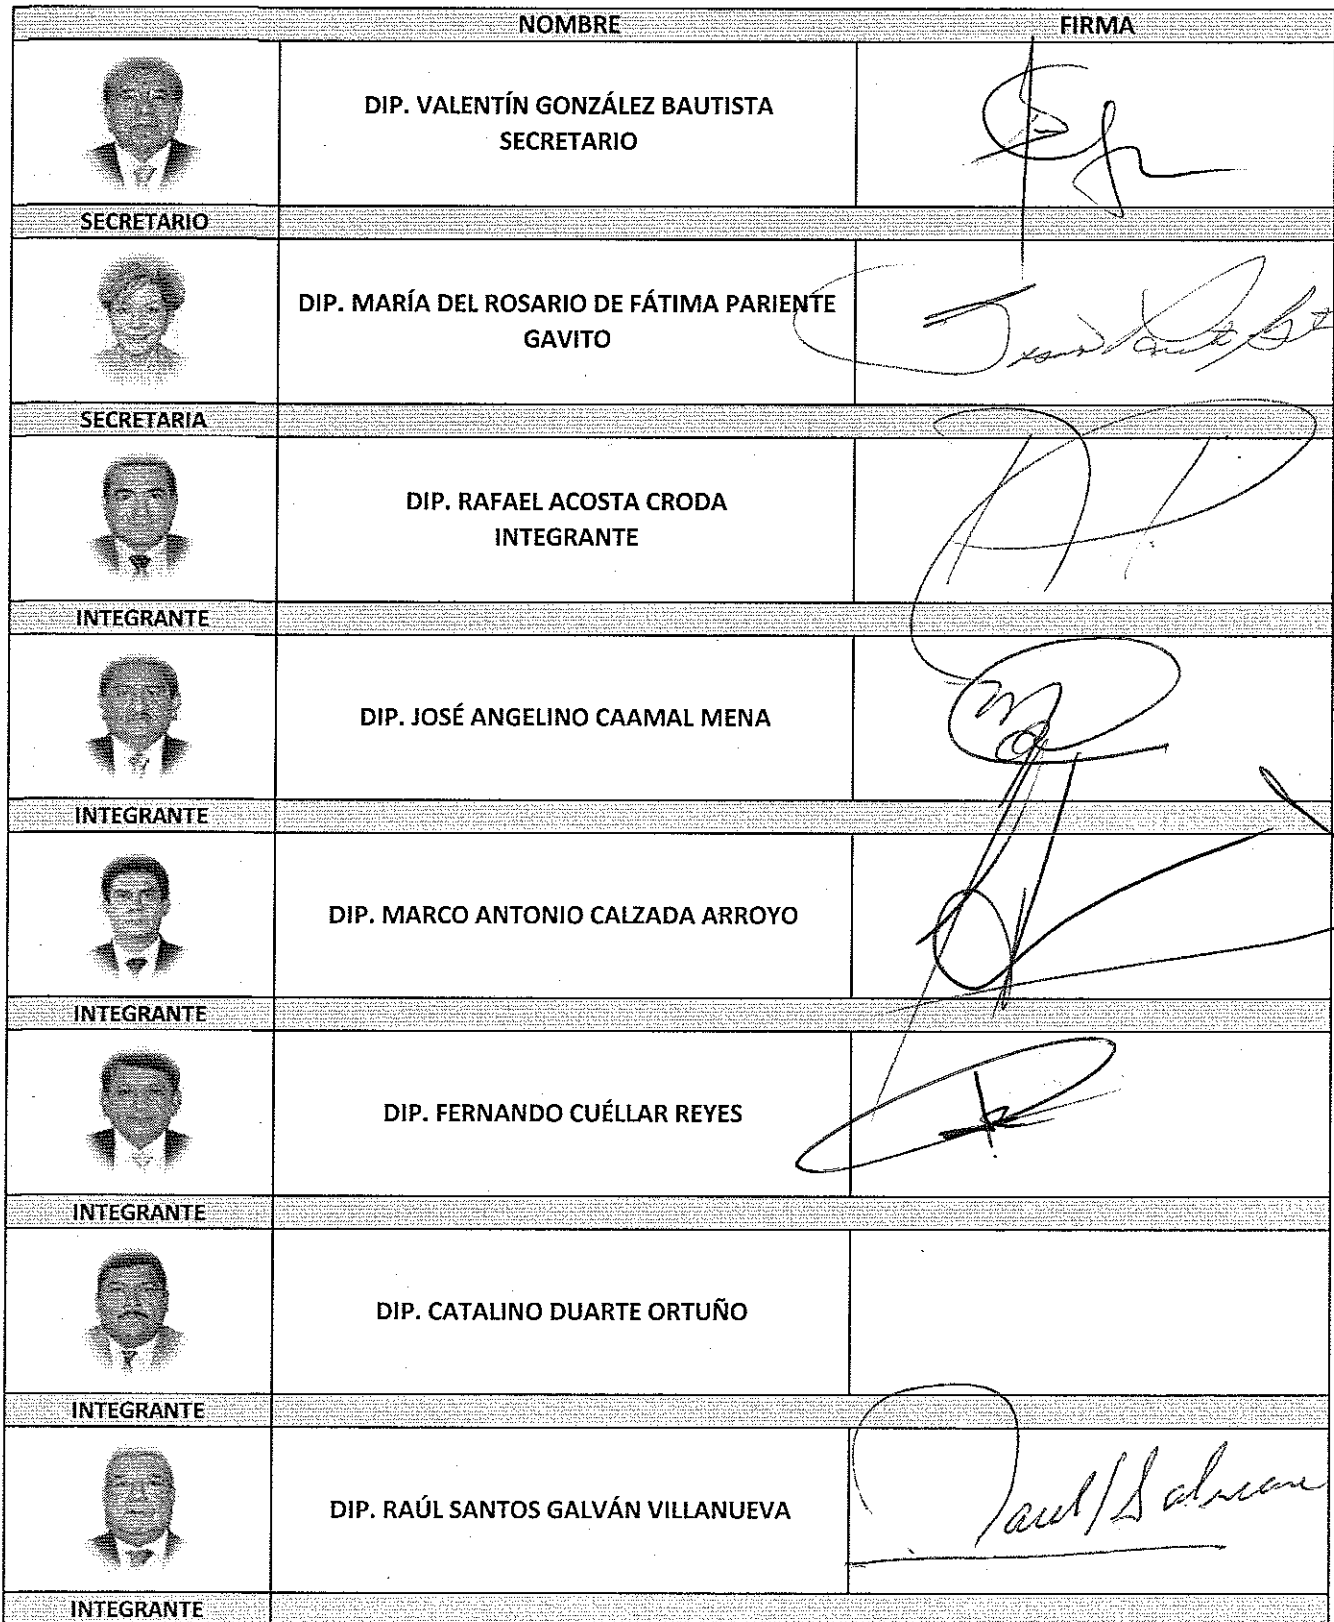 NOMBRE FIRMA
DIP. VALENTÍN GONZÁLEZ BAUTISTA
SECRETARIO
SECRETARIO
DIP. MARÍA DEL ROSARIO DE FÁTIMA PARIENTE
GAVITO
SECRETARIA
DIP. RAFAEL ACOSTA CRODA
INTEGRANTE
INTEGRANTE
DIP. JOSÉ ANGELINO CAAMAL MENA
INTEGRANTE
DIP. MARCO ANTONIO CALZADA ARROYO
INTEGRANTE
DIP. FERNANDO CUÉLLAR REYES
INTEGRANTE
DIP. CATALINO DUARTE ORTUÑO
INTEGRANTE
DIP. RAÚL SANTOS GALVÁN VILLANUEVA
INTEGRANTE